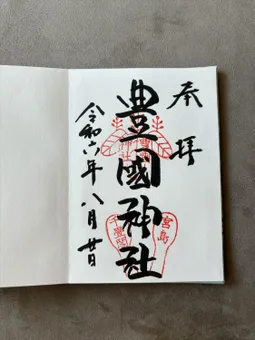 奉拝
豊國神社
千畳閣
宮島
令和六年八月廿日